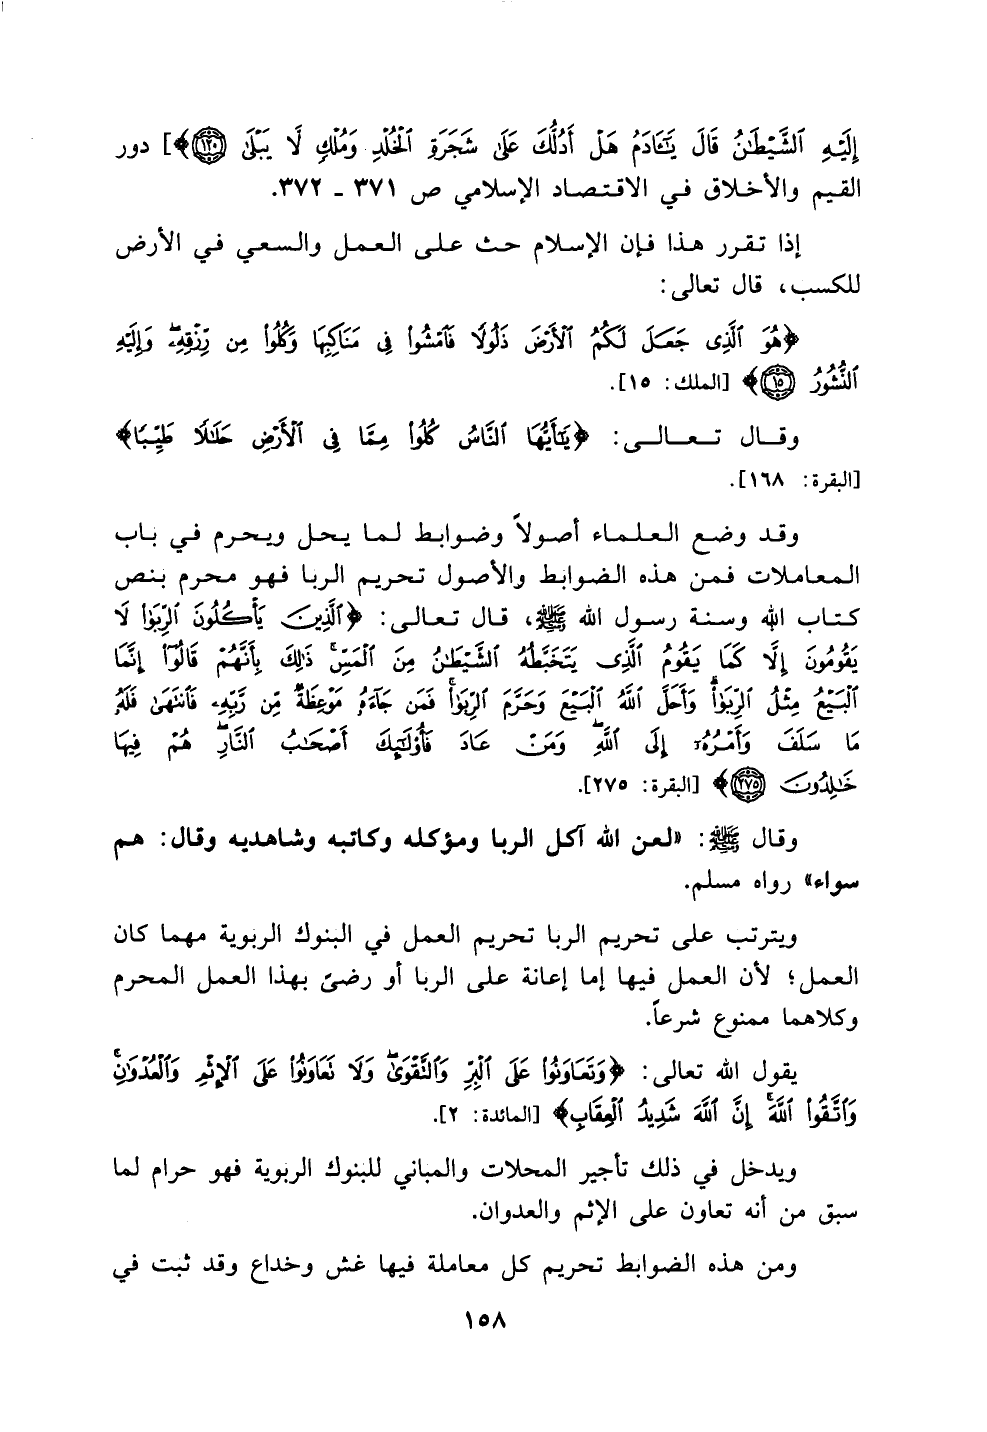 إِلَيْهِ ٱلشَّيْطَٰنُ قَالَ يَٰٓـَٔادَمُ هَلْ أَدُلُّكَ عَلَىٰ شَجَرَةِ ٱلْخُلْدِ وَمُلْكٍ لَّا يَبْلَىٰ ﴿١٢٠﴾﴾] دور
القيم والأخلاق في الاقتصاد الإسلامي ص ٣٧١ ـ ٣٧٢.
إذا تقرر هذا فإن الإسلام حث على العمل والسعي في الأرض
للكسب، قال تعالى:
﴿هُوَ ٱلَّذِى جَعَلَ لَكُمُ ٱلْأَرْضَ ذَلُولًا فَٱمْشُوا۟ فِى مَنَاكِبِهَا وَكُلُوا۟ مِن رِّزْقِهِۦ ۖ وَإِلَيْهِ
ٱلنُّشُورُ ﴿١٥﴾﴾ [الملك: ١٥].
وقال تعالى: ﴿يَٰٓأَيُّهَا ٱلنَّاسُ كُلُوا۟ مِمَّا فِى ٱلْأَرْضِ حَلَٰلًا طَيِّبًا﴾
[البقرة: ١٦٨].
وقد وضع العلماء أصولاً وضوابط لما يحل ويحرم في باب
المعاملات فمن هذه الضوابط والأصول تحريم الربا فهو محرم بنص
كتاب الله وسنة رسول الله ﷺ، قال تعالى: ﴿ٱلَّذِينَ يَأْكُلُونَ ٱلرِّبَوٰا۟ لَا
يَقُومُونَ إِلَّا كَمَا يَقُومُ ٱلَّذِى يَتَخَبَّطُهُ ٱلشَّيْطَٰنُ مِنَ ٱلْمَسِّ ۚ ذَٰلِكَ بِأَنَّهُمْ قَالُوٓا۟ إِنَّمَا
ٱلْبَيْعُ مِثْلُ ٱلرِّبَوٰا۟ ۗ وَأَحَلَّ ٱللَّهُ ٱلْبَيْعَ وَحَرَّمَ ٱلرِّبَوٰا۟ ۚ فَمَن جَآءَهُۥ مَوْعِظَةٌ مِّن رَّبِّهِۦ فَٱنتَهَىٰ فَلَهُۥ
مَا سَلَفَ وَأَمْرُهُۥٓ إِلَى ٱللَّهِ ۖ وَمَنْ عَادَ فَأُو۟لَٰٓئِكَ أَصْحَٰبُ ٱلنَّارِ ۖ هُمْ فِيهَا
خَٰلِدُونَ ﴿٢٧٥﴾﴾ [البقرة: ٢٧٥].
وقال ﷺ: «لعن الله آكل الربا ومؤكله وكاتبه وشاهديه وقال: هم
سواء» رواه مسلم.
ويترتب على تحريم الربا تحريم العمل في البنوك الربوية مهما كان
العمل؛ لأن العمل فيها إما إعانة على الربا أو رضىً بهذا العمل المحرم
وكلاهما ممنوع شرعاً.
يقول الله تعالى: ﴿وَتَعَاوَنُوا۟ عَلَى ٱلْبِرِّ وَٱلتَّقْوَىٰ ۖ وَلَا تَعَاوَنُوا۟ عَلَى ٱلْإِثْمِ وَٱلْعُدْوَٰنِ ۚ
وَٱتَّقُوا۟ ٱللَّهَ ۖ إِنَّ ٱللَّهَ شَدِيدُ ٱلْعِقَابِ﴾ [المائدة: ٢].
ويدخل في ذلك تأجير المحلات والمباني للبنوك الربوية فهو حرام لما
سبق من أنه تعاون على الإثم والعدوان.
ومن هذه الضوابط تحريم كل معاملة فيها غش وخداع وقد ثبت في
١٥٨